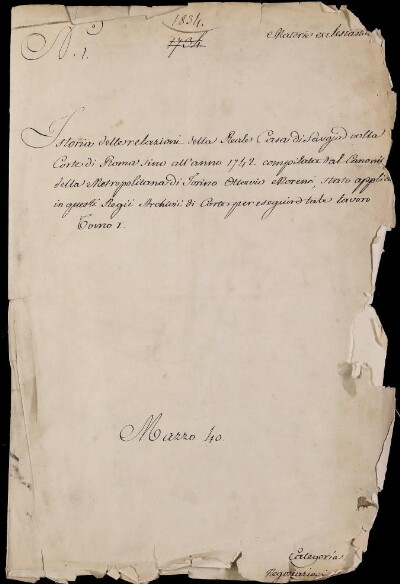 1834.
N. 1.
1734
Materie ecclesiastic
Istoria delle relazioni della Reale Casa di Savoja colla
Corte di Roma sino all'anno 1742. compilata dal Canonic
della Metropolitana di Torino Ottavio Moreno, stato applica
in questi Regii Archivi di Corte per eseguire tale lavoro
Tomo 1.
Mazzo 40.
Categoria
Negoziazioni